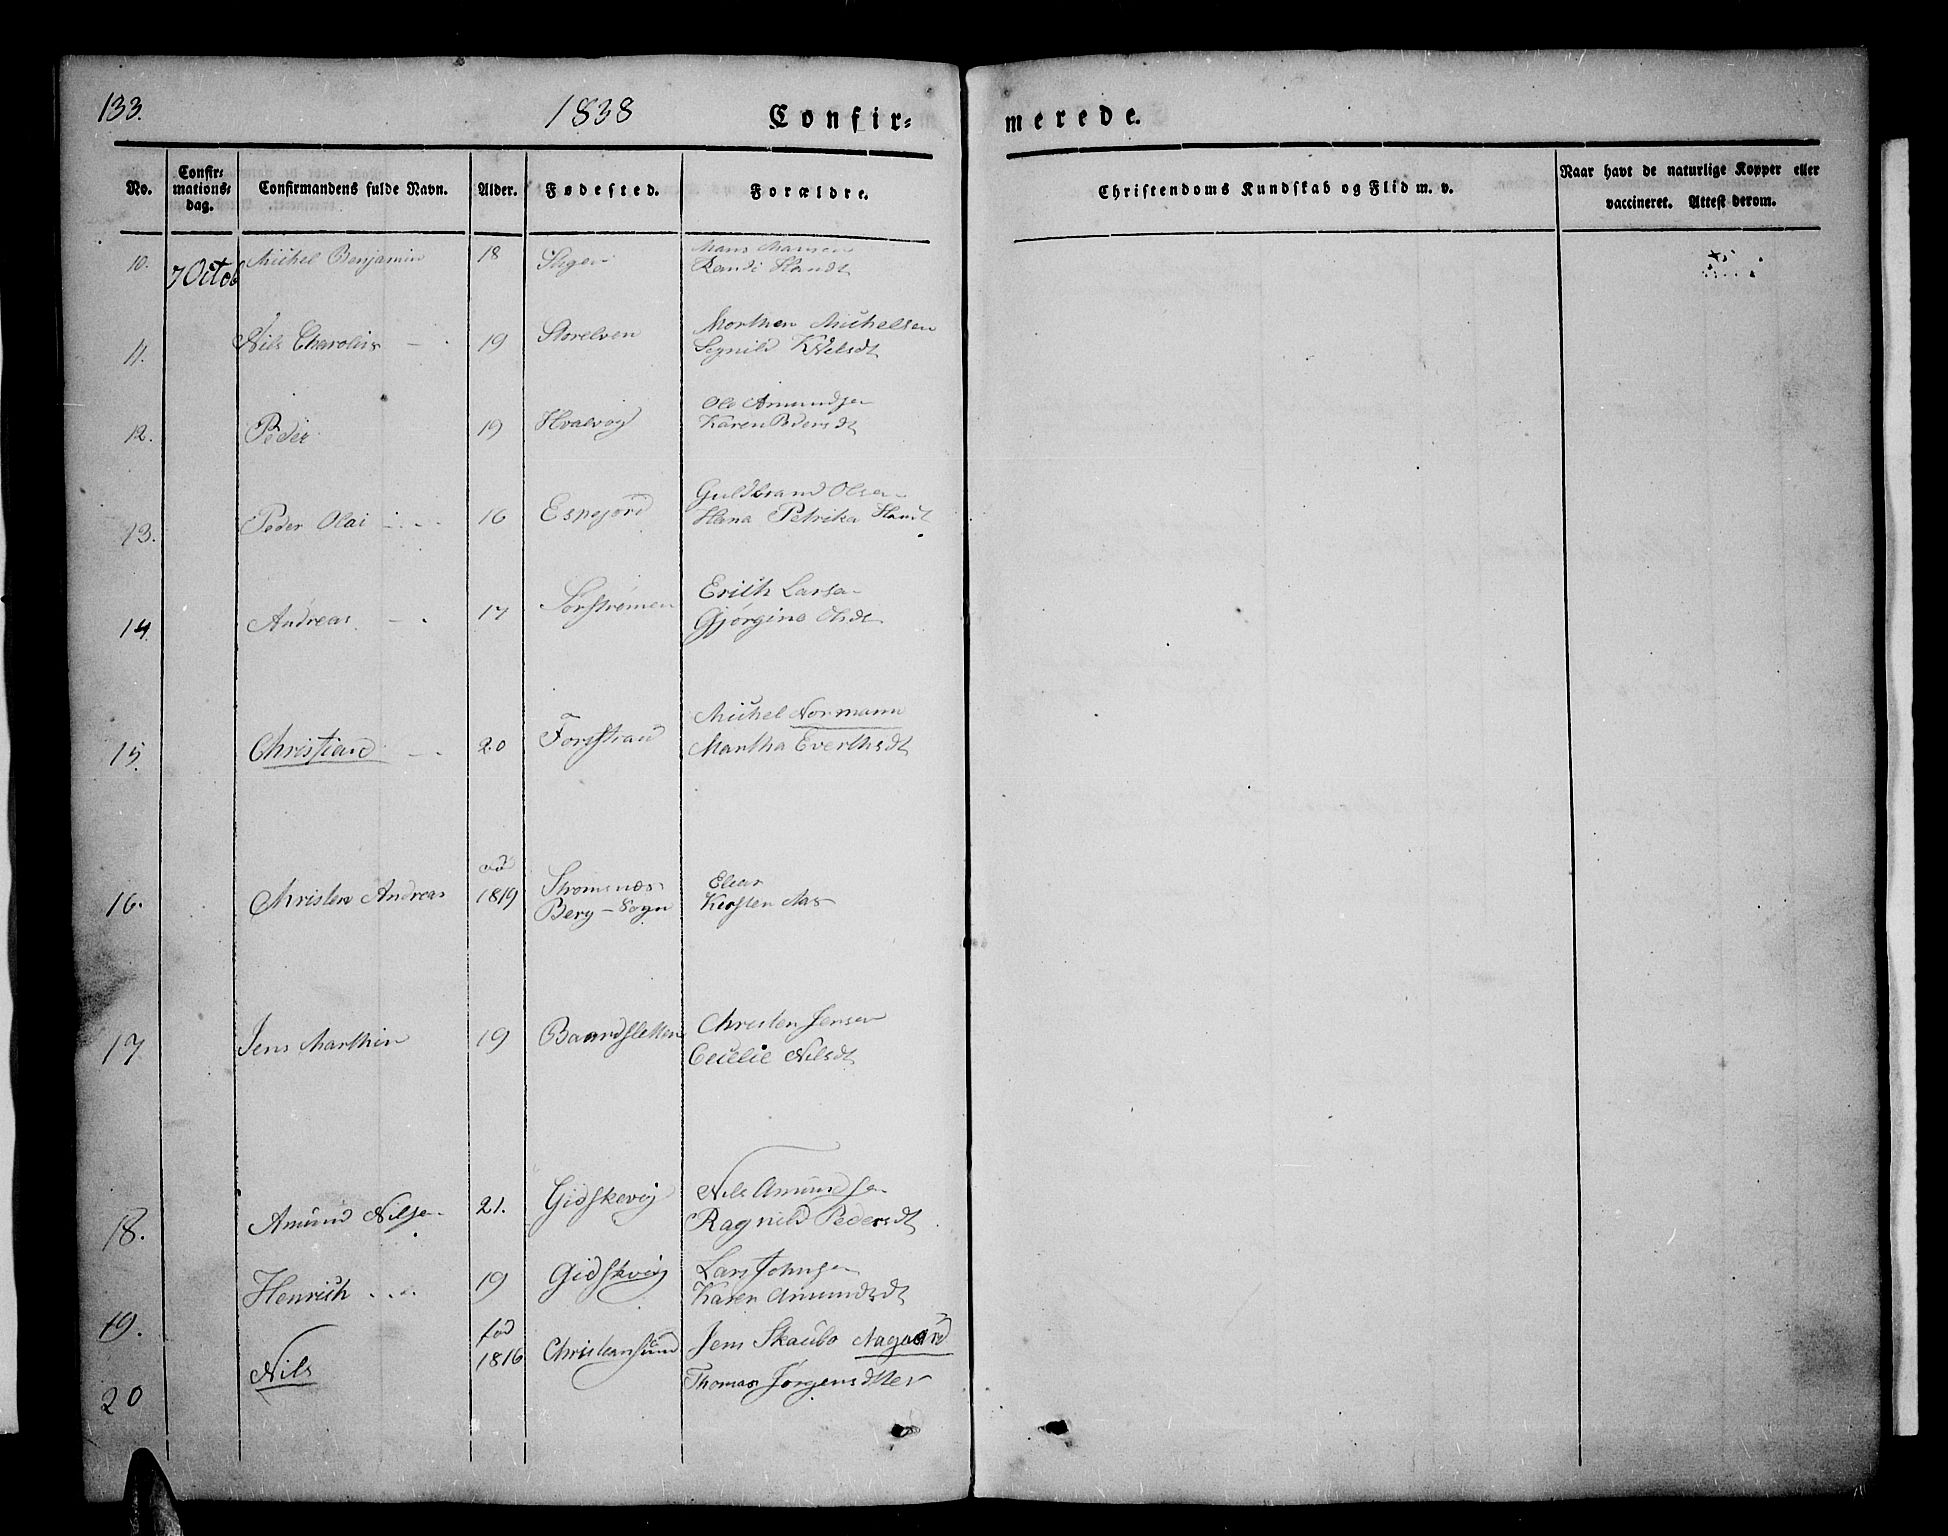 133.
1838
Confir=
merede.
No.
Confir=
mations=
dag.
Confirmandens fulde Navn.
Alder.
Fødested.
Forældre.
Christendoms Kundskab og Flid m. v.
Naar havt de naturlige Kopper eller
vaccineret. Attest derom.
10. 7 Octob Michel Benjamin 18
Hans Hansen
Randi Hansdt
11. Nils Charolius 19 Storelven
Morthen Michelsen
Nelsdt
12. Peder 19 Hvalvog
Ole Amundsen
Karen Pedersdt
13. Peder Olai 16 Espejord
Guldbrand Olsen
Hana Petrika Hansdt
14. Andreas 17 Sørstrømen
Erich Larsen
Gjørgine Olsdt
15. Christian 20 Forstrand
Michel Normann
Martha Everthsdt
16. Christen Andreas 1819 Stromsnæs
Berg - Sogn
Elias
Kirsten Aas
17 Jens Marthin 19 Baardsletten
Christen Jensen
Cecilie Nilsdt
18. Amund Nilsen 21. Gidskevig
Nils Amundsen
Ragnild Pedersdt
19. Henrich 19 Gidskevig
Lars Johnsen
Karen Amundsdt
20 Nils fød
1816 Christiansund
Jens Skaubo Aagaard
Thomas Jørgensdtter